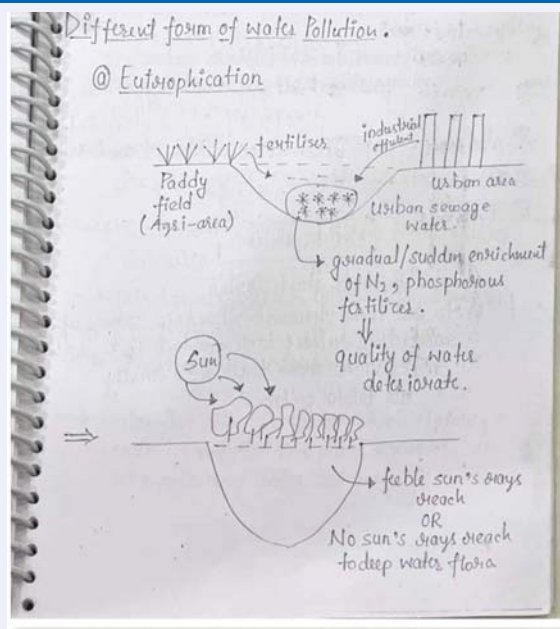 Different form of water Pollution.
@ Eutrophication
fertiliser
industrial
effluent
Paddy
field
(Agri-area)
urban area
urban sewage
water.
gradual/sudden enrichment
of N2, phosphorious
fertilizer.
quality of water
deteriorate.
Sun
feeble sun's rays
reach
OR
No sun's rays reach
to deep water flora